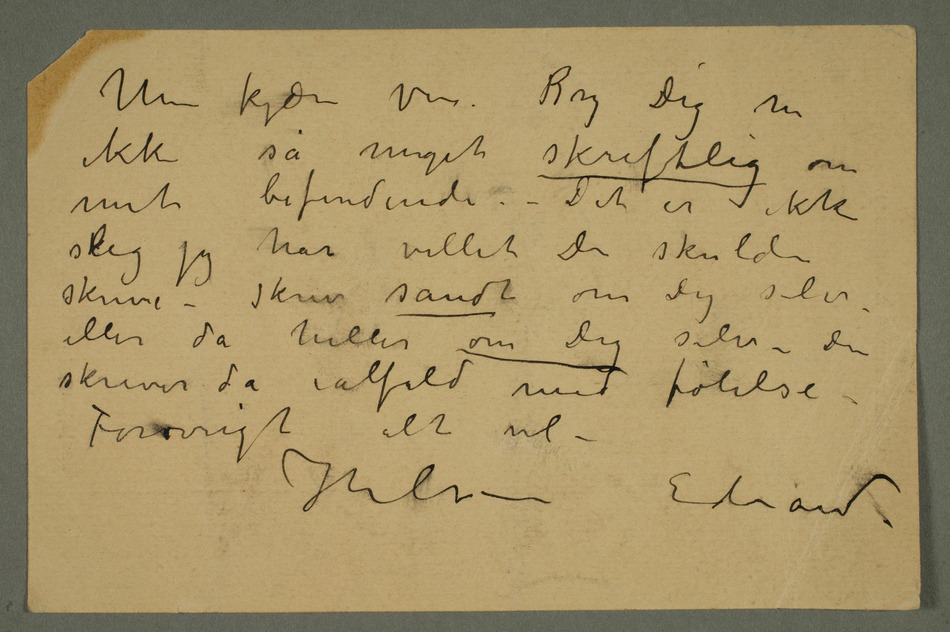 Min kjære ven. Bry Dig nu
ikke så meget skriftlig om
mit befindende. – Det er ikke
slig jeg har villet Du skulde
skrive – skriv sandt om Dig selv
eller da heller om Dig selv – du
skriver da ialfald med følelse –
Forøvrigt alt vel –
Hilsen Edvard.